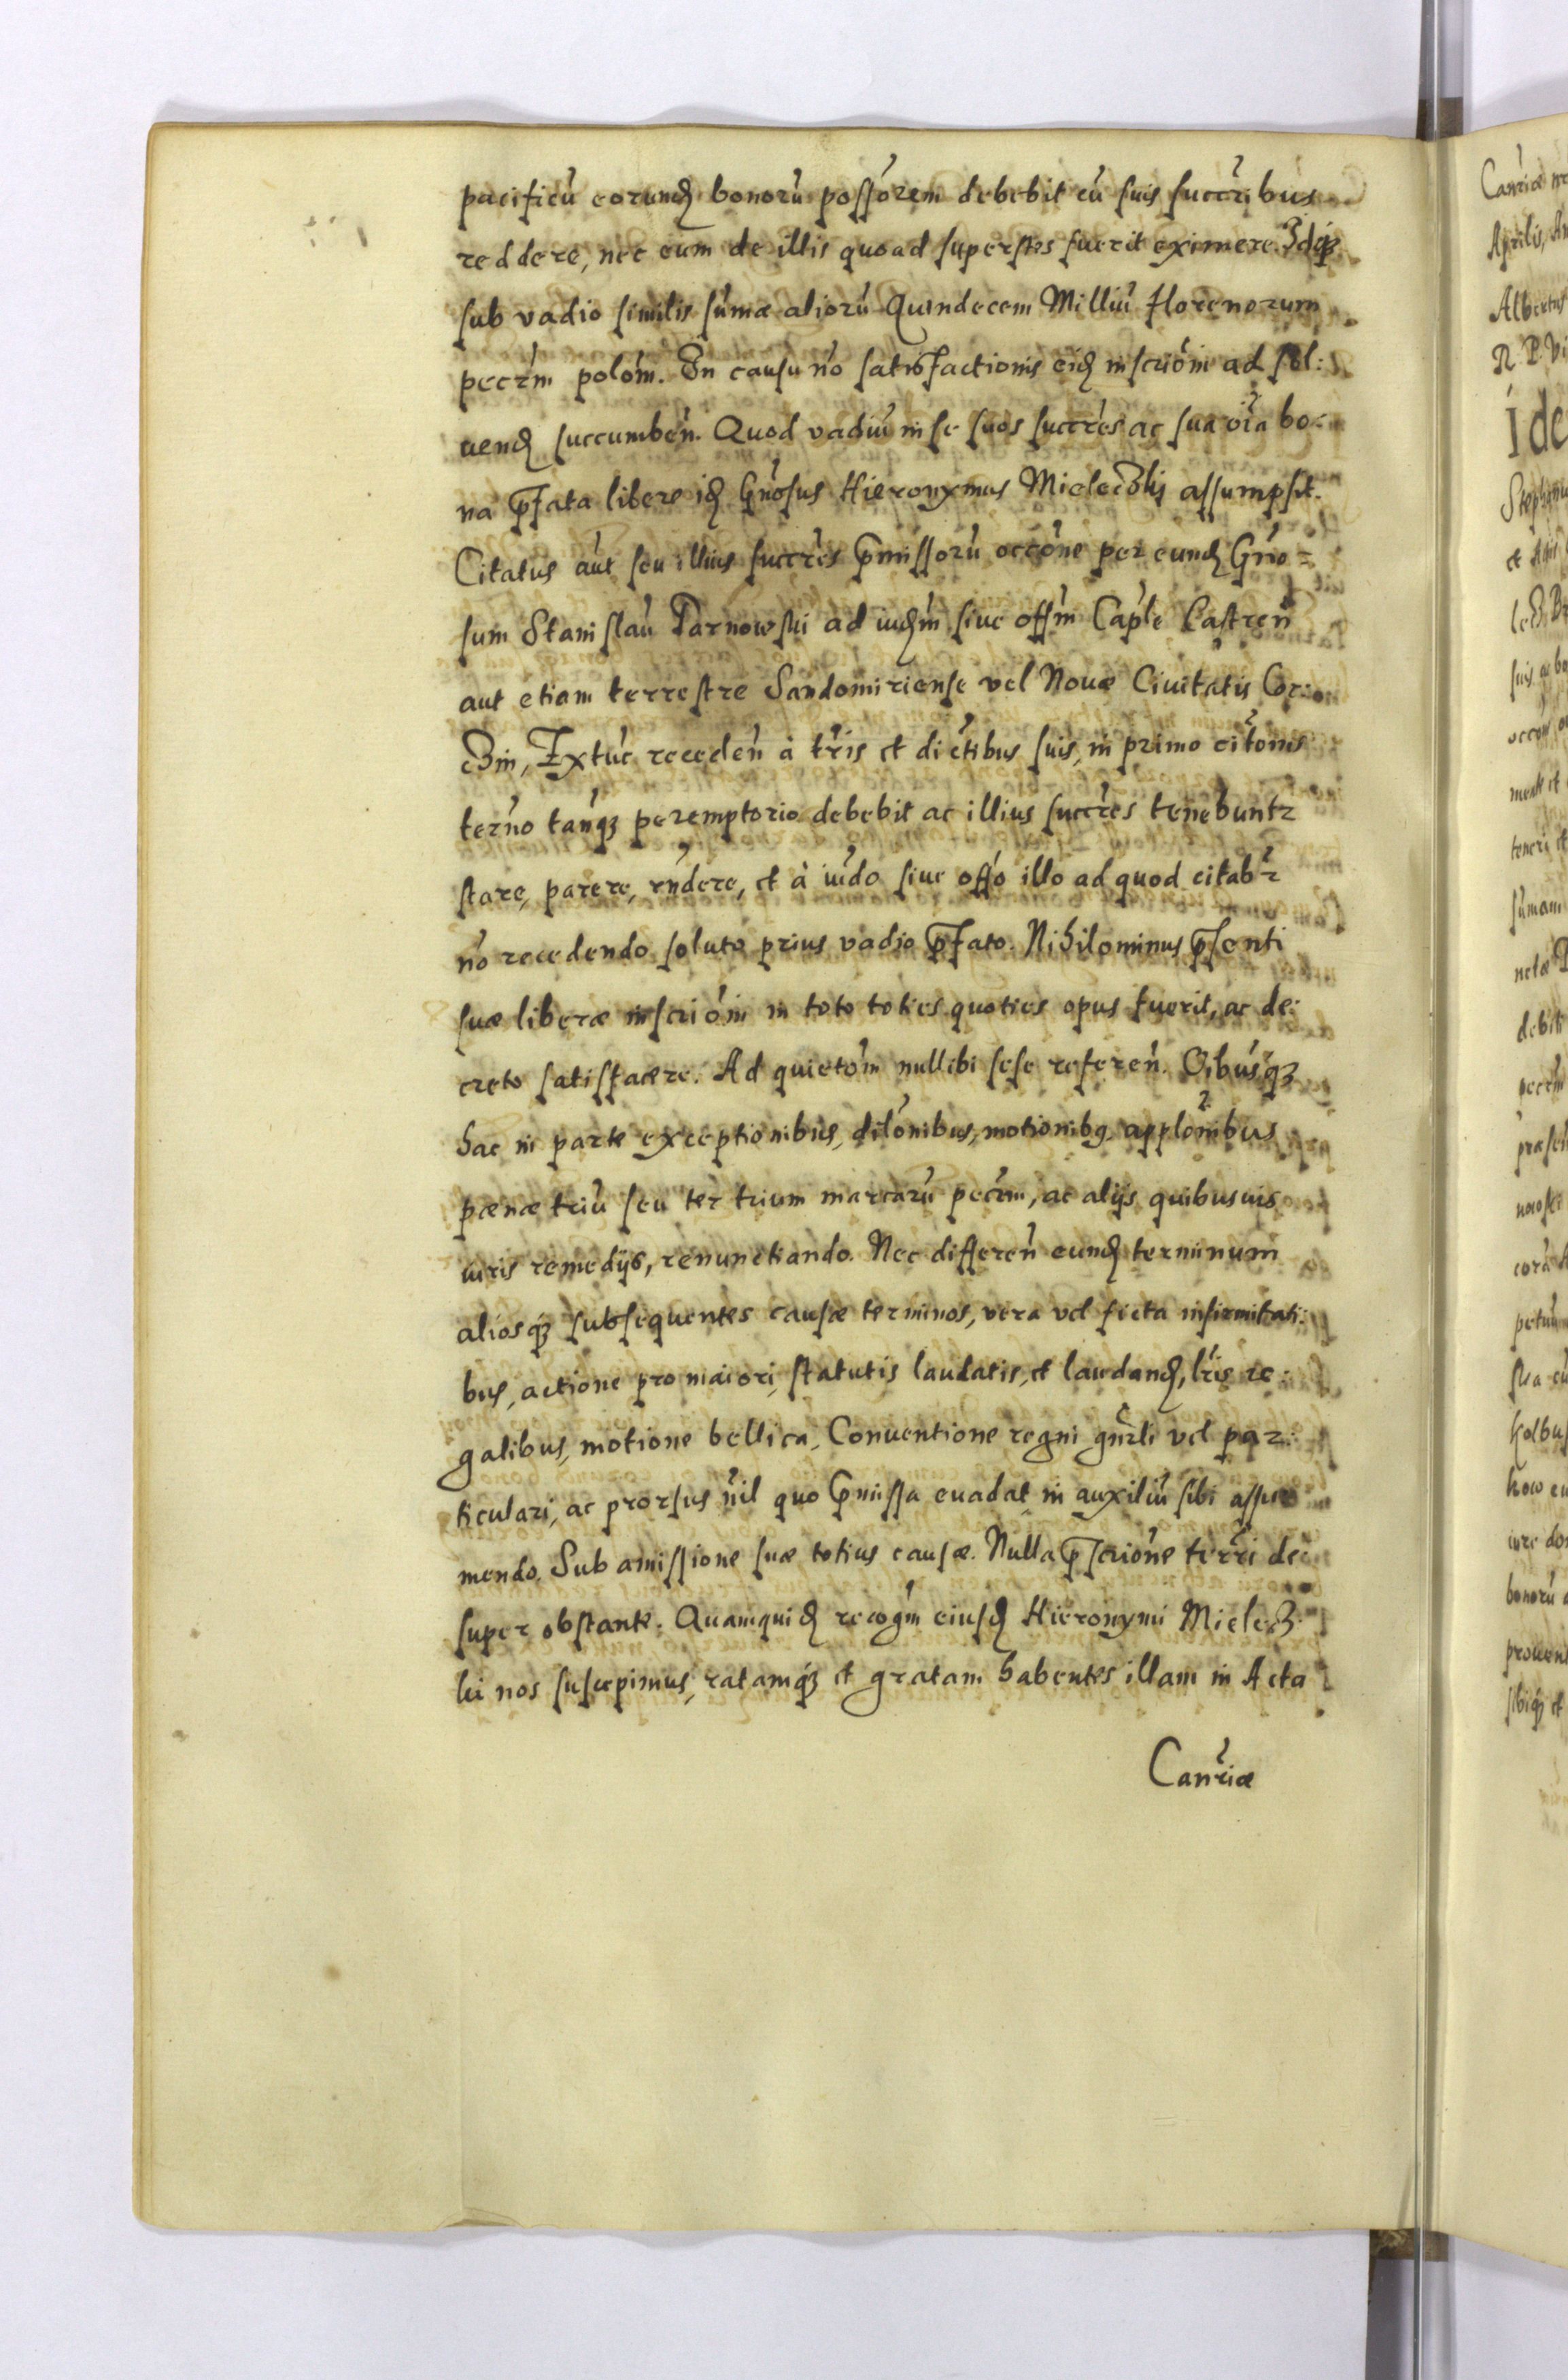 pacificu eorund bonoru possorem debebit cu suis succribus
reddere, nec eum de illis quoad superstes fuerit eximere. Idq
sub vadio similis sumæ alioru Quindecem Milliu Florenorum
pecrm polom. In causu no satisfactionis eid inscriom ad sol:
uend succumben. Quod vadiu in se suos succres ac sua oia bo:
na pfata libere id Gnosus Hieronymus Mieleczki assumpsit.
Citatus aut seu illius succres pmissoru occone per eund Gno=
sum Stanislau Tarnowski ad iudm siue offm Caple Castren
aut etiam terrestre Sandomiriense vel Nouæ Ciuitatis Cor:
czin, Extuc receden à tris et dictibus suis, in primo citonis
termo tanq peremptorio debebit ac illius succres tenebuntr
stare, parere, rndere, et à iudo siue offo illo ad quod citabr
no recedendo soluto prius vadio pfato. Nihilominus psenti
suæ liberæ inscriom in toto toties quoties opus fuerit, ac de:
creto satisfacere. Ad quietom nullibi sese referen. Oibusq
hac in parte exceptionibus, dilonibus, motionibq, applonibus
pænæ triu seu ter trium marcaru pecrm, ac alijs quibusuis
iuris remedijs, renunctiando. Nec differen eund terminum
aliosq subsequentes causæ terminos, vera vel ficta infirmitati:
bus, actione pro maiori, statutis laudatis, et laudand, lris re:
galibus, motione bellica, Conuentione regni gnrli vel par:
ticulari, ac prorsus nil quo pmissa euadat in auxiliu sibi assu
mendo. Sub amissione suæ totius causæ. Nulla pscrione terri de:
super obstante. Quamquid recogm eiusd Hieronymi Mielecz:
ki nos suscepimus, ratamq et gratam habentes illam in Acta
Canriæ